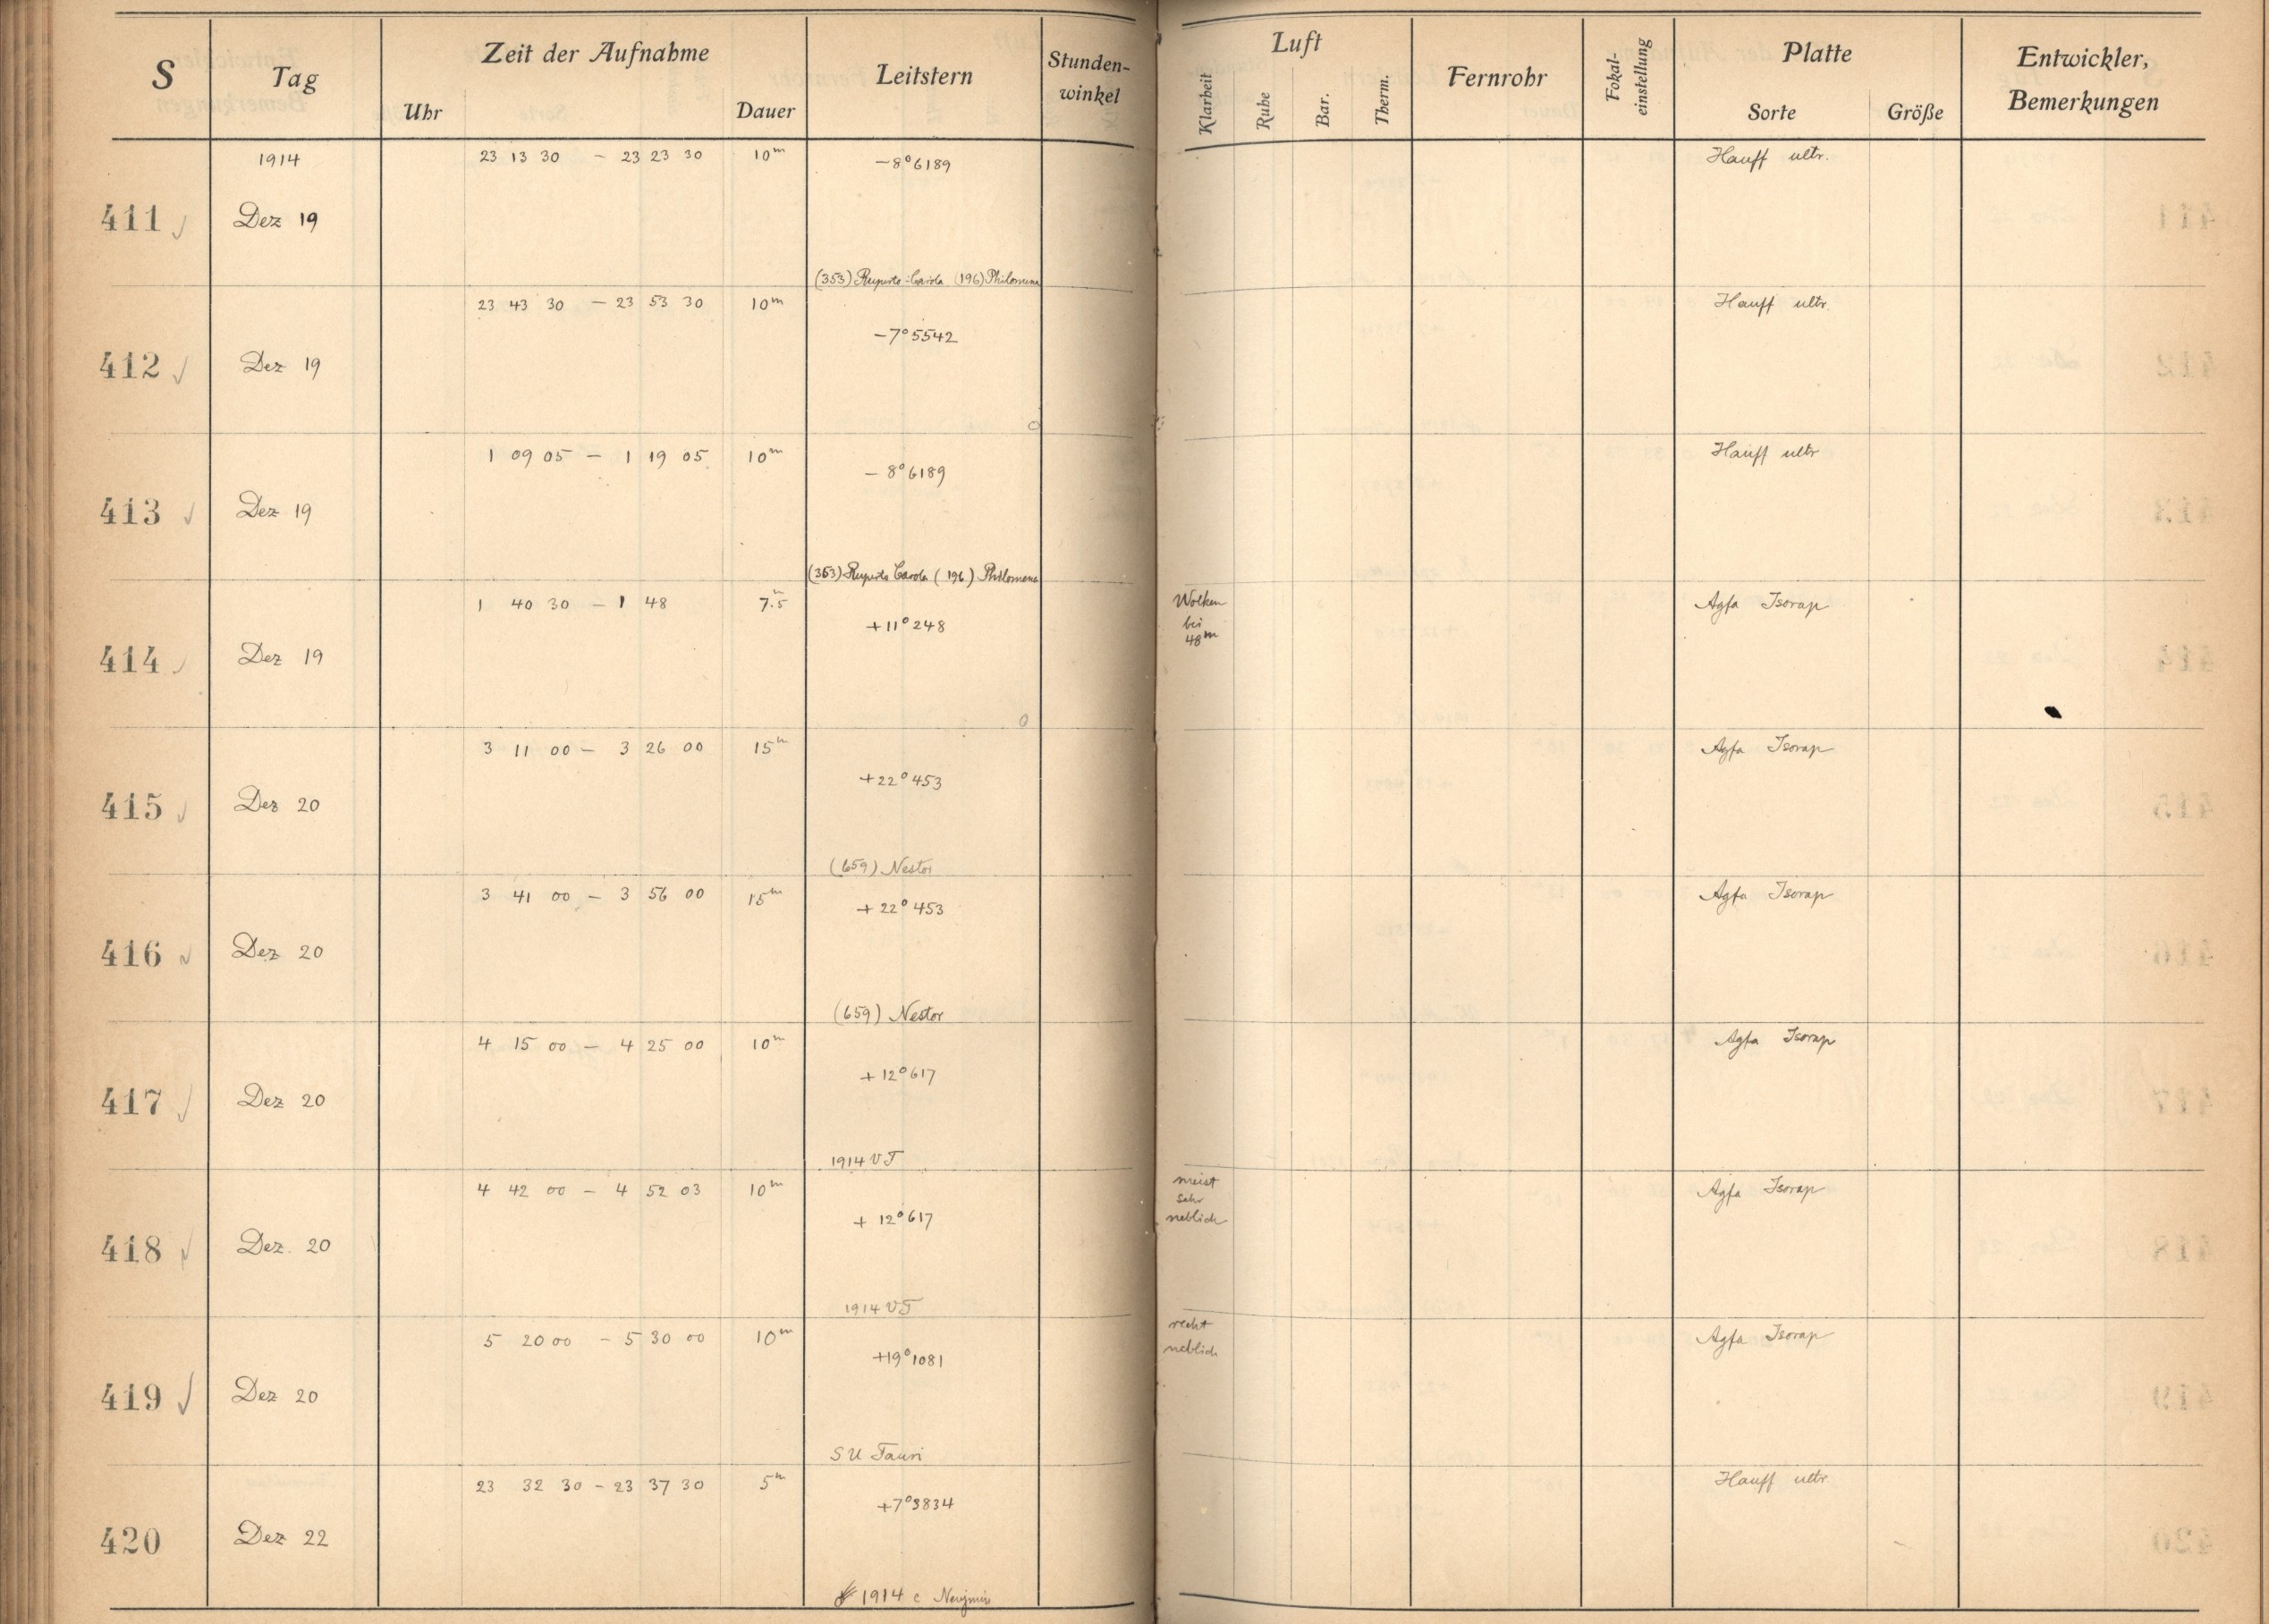 S Tag Zeit der Aufnahme Leitstern Stunden-winkel Luft Fernrohr Fokal-einstellung Platte Entwickler, Bemerkungen
Uhr Dauer Klarheit Ruhe Bar. Therm. Sorte Größe
1914 23 13 30 – 23 23 30 10m –8°6189 Hauff ultr.
411 Dez 19
(353) Ruperto-Carola (196) Philomena
23 43 30 – 23 53 30 10m Hauff ultr.
–7°5542
412 Dez 19
1 09 05 – 1 19 05 10m Hauff ultr
– 8°6189
413 Dez 19
(353) Ruperto Carola (196) Philomena
1 40 30 – 1 48 7.5m Wolken Agfa Isorap
+11°248 bei
48m
414 Dez 19
3 11 00 – 3 26 00 15m Agfa Isorap
+22°453
415 Dez 20
(659) Nestor
3 41 00 – 3 56 00 15m Agfa Isorap
+22°453
416 Dez 20
(659) Nestor
4 15 00 – 4 25 00 10m Agfa Isorap
+12°617
417 Dez 20
1914 VJ
4 42 00 – 4 52 03 10m meist Agfa Isorap
sehr
+ 12°617 neblich
418 Dez. 20
1914 VJ
5 20 00 – 5 30 00 10m recht Agfa Isorap
+19°1081 neblich
419 Dez 20
SU Tauri
23 32 30 – 23 37 30 5m Hauff ultr.
+7°3834
420 Dez 22
1914 c Neujmin